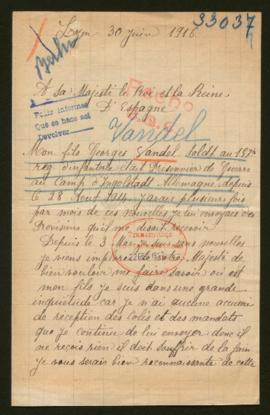 33037
Lyon 30 Juin 1916
A sa Majesté le Roi et la Reine
D'Espagne
Pedir informes
Que se hace así
Devolver
Vandel
Mon fils Georges Vandel Soldt au 157e
reg d'infanterie etait Prisonnier de Guerre
au camp d'Ingolstadt Allemagne depuis
le 28 Aout 1914 j'avais plusieurs fois
par mois de ces nouvelles je lui envoyais des
Provisions qu'il me disait recevoir
Depuis le 3 Mai je suis sans nouvelles
je viens implorer Votre Majesté de
bien vouloir me faire savoir ou est
mon fils je suis dans une grande
inquiétude car je n'ai aucune accusé
de reception des colis et des mandats
que je continue de lui envoyer donc il
ne reçois rien il doit souffrir de la faim
je vous serais bien reconnaissante de cette